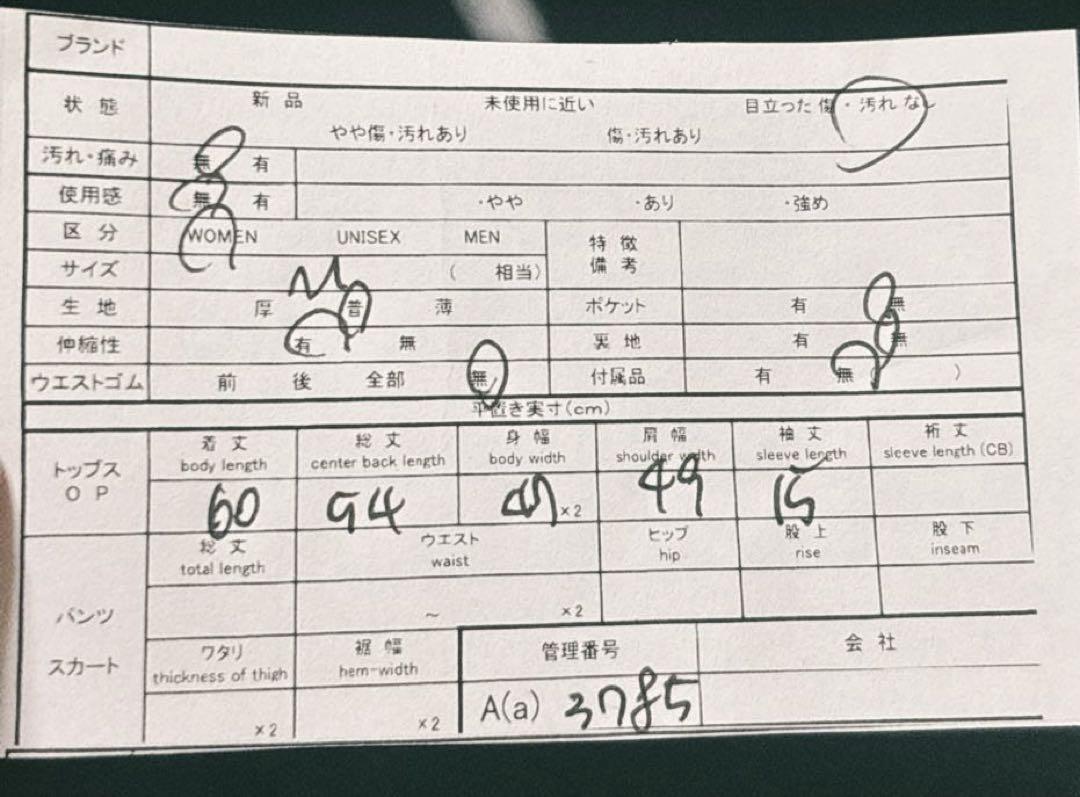 ブランド
状態 新品 未使用に近い 目立った傷・汚れなし
やや傷・汚れあり 傷・汚れあり
汚れ・痛み 無 有
使用感 無 有 ・やや ・あり ・強め
区分 WOMEN UNISEX MEN 特徴
備考
サイズ M ( 相当)
生地 厚 普 薄 ポケット 有 無
伸縮性 有 無 裏地 有 無
ウエストゴム 前 後 全部 無 付属品 有 無 ( )
平置き実寸(cm)
トップス
OP
着丈 総丈 身幅 肩幅 袖丈 裄丈
body length center back length body width shoulder width sleeve length sleeve length (CB)
60 ×2 49 15
総丈 ウエスト ヒップ 股上 股下
total length waist hip rise inseam
パンツ ~ ×2
スカート
ワタリ 裾幅 管理番号 会社
thickness of thigh hem-width
×2 ×2 A(a) 3785